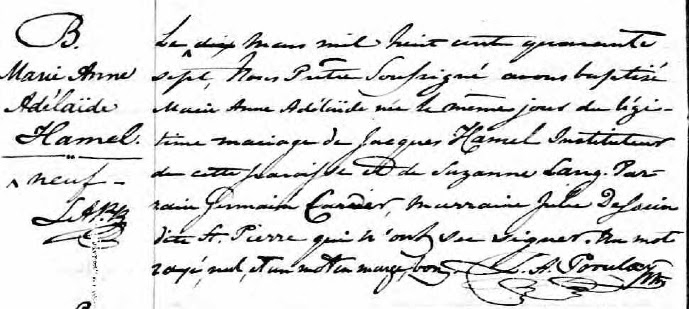 B.
Marie Anne
Adélaïde
Hamel.
^ neuf -
Le ^ dix Mars mil huit cent quarante
sept, Nous Prêtre Soussigné avons baptisé
Marie Anne Adélaïde née le même jour du légi-
time mariage de Jacques Hamel Instituteur
de cette paroisse et de Suzanne Lang. Par-
rain Germain Carrier, marraine Julie
dite St. Pierre qui n'ont su signer. Un mot
rayé, nul, et un mot en marge, bon. L. A.